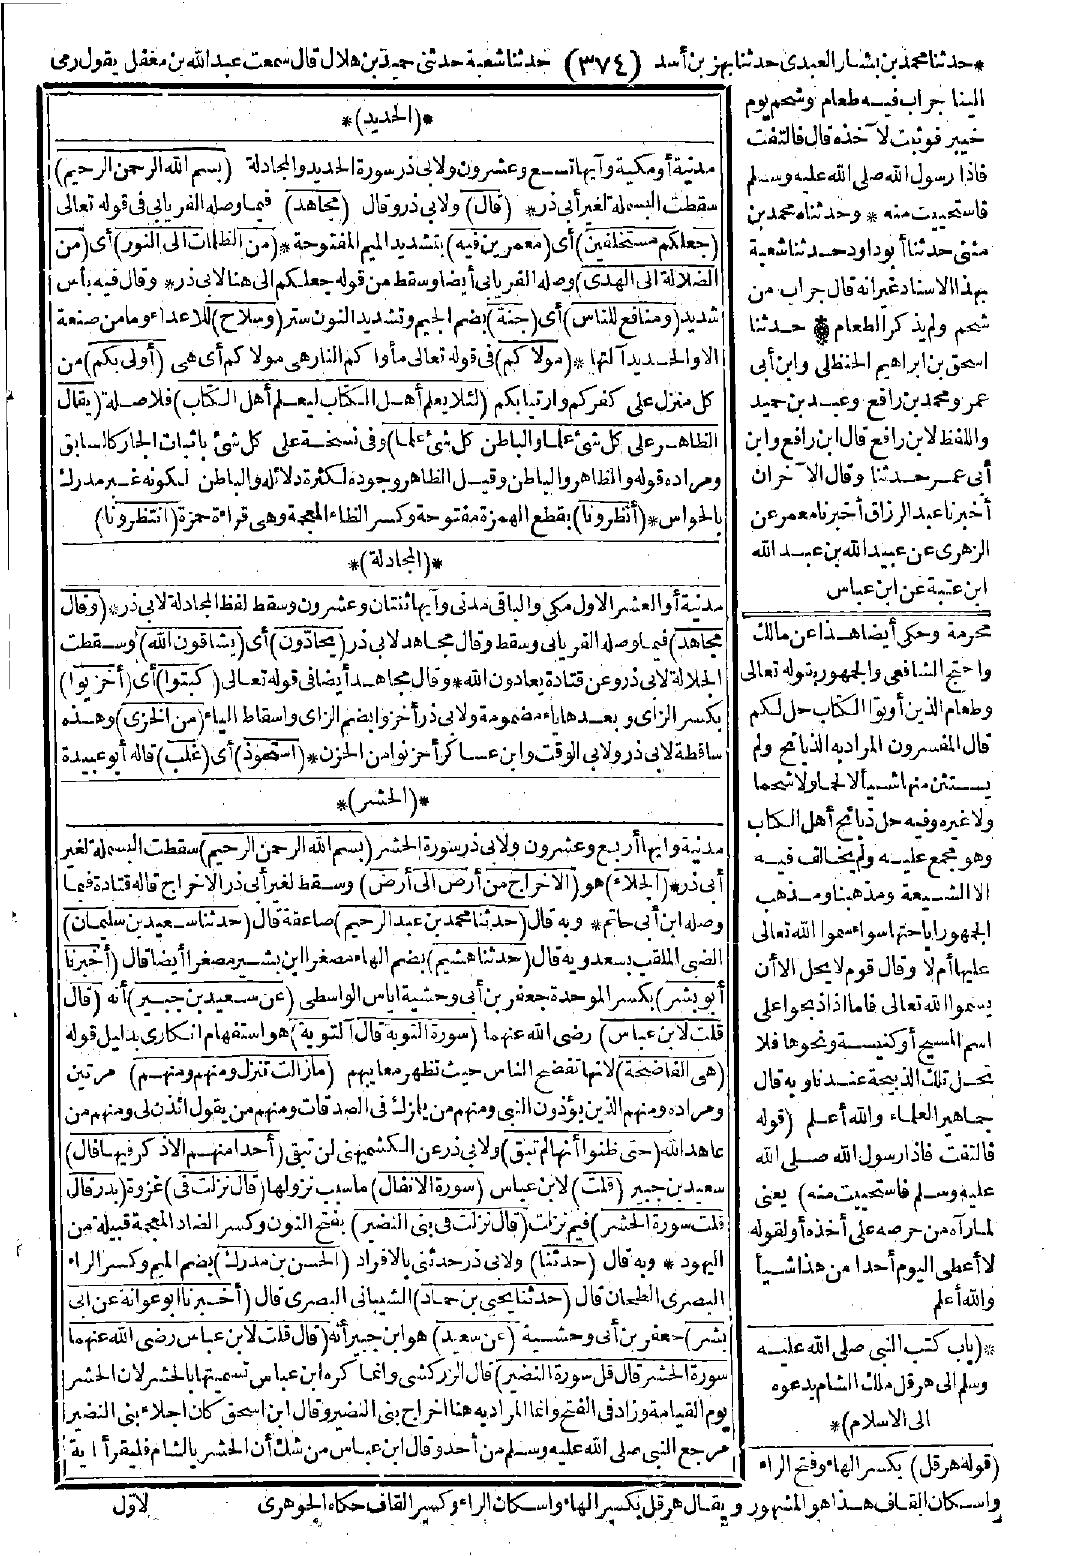 * حدثنا محمد بن بشار العبدى حدثنا بهز بن أسد (٣٧٤) حدثنا شعبة حدثنى حميد بن هلال قال سمعت عبد الله بن مغفل يقول رمى
الينا جراب فيه طعام وشحم يوم
خيبر فوثبت لآخذه قال فالتفت
فاذا رسول الله صلى الله عليه وسلم
فاستحييت منه * وحدثناه محمد بن
مثنى حدثنا أبو داود حدثنا شعبة
بهذا الاسناد غير انه قال جراب من
شحم ولم يذكر الطعام * حدثنا
اسحق بن ابراهيم الحنظلى وابن أبى
عمر ومحمد بن رافع وعبد بن حميد
واللفظ لابن رافع قال ابن رافع وابن
أبى عمر حدثنا وقال الآخران
أخبرنا عبد الرزاق أخبرنا معمر عن
الزهرى عن عبيد الله بن عبد الله
ابن عتبة عن ابن عباس
محرمة وحكى أيضا هذا عن مالك
واحتج الشافعى والجمهور بقوله تعالى
وطعام الذين أوتوا الكتاب حل لكم
قال المفسرون المراد به الذبائح ولم
يستثن منها شيأ لا لحما ولا شحما
ولا غيره وفيه حل ذبائح أهل الكتاب
وهو مجمع عليه ولم يخالف فيه
الا الشيعة ومذهبنا ومذهب
الجمهور اباحتها سواء سموا الله تعالى
عليها أم لا وقال قوم لا يحل الا أن
يسموا الله تعالى فاما اذا ذبحوا على
اسم المسيح أو كنيسة ونحوها فلا
تحل تلك الذبيحة عندنا وبه قال
جماهير العلماء والله أعلم (قوله
فالتفت فاذا رسول الله صلى الله
عليه وسلم فاستحييت منه) يعنى
لما رآه من حرصه على أخذه أو لقوله
لا أعطى اليوم أحدا من هذا شيأ
والله أعلم
*(باب كتب النبى صلى الله عليه
وسلم الى هرقل ملك الشام يدعوه
الى الاسلام)*
(قوله هرقل) بكسر الهاء وفتح الراء
واسكان القاف هذا هو المشهور ويقال هرقل بكسر الهاء واسكان الراء وكسر القاف حكاه الجوهرى
*(الحديد)*
مدنية أو مكية وآيها تسع وعشرون ولابى ذر سورة الحديد والمجادلة (بسم الله الرحمن الرحيم)
سقطت البسملة لغير أبى ذر * (قال) ولابى ذر وقال (مجاهد) فيما وصله الفريابى فى قوله تعالى
(جعلكم مستخلفين) أى (معمرين فيه) بتشديد الميم المفتوحة * (من الظلمات الى النور) أى (من
الضلالة الى الهدى) وصله الفريابى أيضا وسقط من قوله جعلكم الى هنا لابى ذر * وقال فيه بأس
شديد (ومنافع للناس) أى (جنة) بضم الجيم وتشديد النون ستر (وسلاح) للاعداء وما من صنعة
الا والحديد آلتها * (مولاكم) فى قوله تعالى مأواكم النار هى مولاكم أى هى (أولى بكم) من
كل منزل على كفركم وارتيابكم (لئلا يعلم أهل الكتاب ليعلم أهل الكتاب) فلا صلة (يقال
الظاهر على كل شئ علما والباطن كل شئ علما) وفى نسخة على كل شئ باثبات الجار كالسابق
ومراده قوله والظاهر والباطن وقيل الظاهر وجوده لكثرة دلائله والباطن لكونه غير مدرك
بالحواس * (أنظرونا) بقطع الهمزة مفتوحة وكسر الظاء المعجمة وهى قراءة حمزة (انتظرونا)
*(المجادلة)*
مدنية أو العشر الاول مكى والباقى مدنى وآيها ثنتان وعشرون وسقط لفظ المجادلة لابى ذر * (وقال
مجاهد) فيما وصله الفريابى وسقط وقال مجاهد لابى ذر (يحادّون) أى (يشاقون الله) وسقطت
الجلالة لابى ذر وعن قتادة يعادون الله * وقال مجاهد أيضا فى قوله تعالى (كبتوا) أى (أخزيوا)
بكسر الزاى وبعدها ياء مضمومة ولابى ذر أخزوا بضم الزاى واسقاط الياء (من الخزى) وهذه
ساقطة لابى ذر ولابى الوقت وابن عساكر أحزنوا من الحزن * (استحوذ) أى (غلب) قاله أبو عبيدة
*(الحشر)*
مدنية وآيها أربع وعشرون ولابى ذر سورة الحشر (بسم الله الرحمن الرحيم) سقطت البسملة لغير
أبى ذر * (الجلاء) هو (الاخراج من أرض الى أرض) وسقط لغير أبى ذر الاخراج قاله قتادة فيما
وصله ابن أبى حاتم * وبه قال (حدثنا محمد بن عبد الرحيم) صاعقة قال (حدثنا سعيد بن سليمان)
الضبى الملقب بسعدويه قال (حدثنا هشيم) بضم الهاء مصغرا ابن بشير مصغرا أيضا قال (أخبرنا
أبو بشر) بكسر الموحدة جعفر بن أبى وحشية اياس الواسطى (عن سعيد بن جبير) أنه (قال
قلت لابن عباس) رضى الله عنهما (سورة التوبة قال التوبة) هو استفهام انكارى بدليل قوله
(هى الفاضحة) لانها تفضح الناس حيث تظهر معايبهم (مازالت تنزل ومنهم ومنهم) مرتين
ومراده ومنهم الذين يؤذون النبى ومنهم من يلمزك فى الصدقات ومنهم من يقول ائذن لى ومنهم من
عاهد الله (حتى ظنوا أنها لم تبق) ولابى ذر عن الكشميهنى لن تبقى (أحدا منهم الا ذكر فيها قال)
سعيد بن جبير (قلت) لابن عباس (سورة الانفال) ما سبب نزولها (قال نزلت فى) غزوة (بدر قال
قلت سورة الحشر) فيم نزلت (قال نزلت فى بنى النضير) بفتح النون وكسر الضاد المعجمة قبيلة من
اليهود * وبه قال (حدثنا) ولابى ذر حدثنى بالافراد (الحسن بن مدرك) بضم الميم وكسر الراء
البصرى الطحان قال (حدثنا يحيى بن حماد) الشيبانى البصرى قال (أخبرنا أبو عوانة عن أبى
بشر) جعفر بن أبى وحشية (عن سعيد) هو ابن جبير أنه (قال قلت لابن عباس رضى الله عنهما
سورة الحشر قال قل سورة النضير) قال الزركشى وانما كره ابن عباس تسميتها بالحشر لان الحشر
يوم القيامة وزاد فى الفتح وانما المراد به هنا اخراج بنى النضير وقال ابن اسحق كان اجلاء بنى النضير
مرجع النبى صلى الله عليه وسلم من أحد وقال ابن عباس من شك أن الحشر بالشام فليقرأ آية
لاوّل